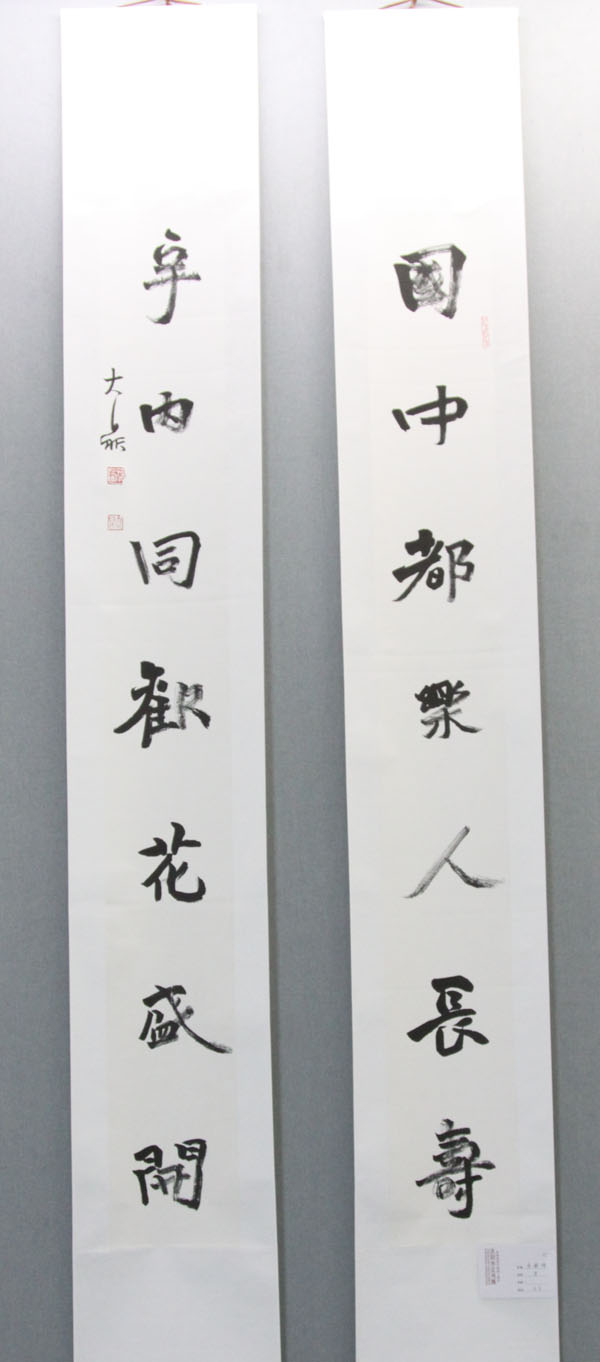 國中都樂人長壽
宇内同歡花盛開
大